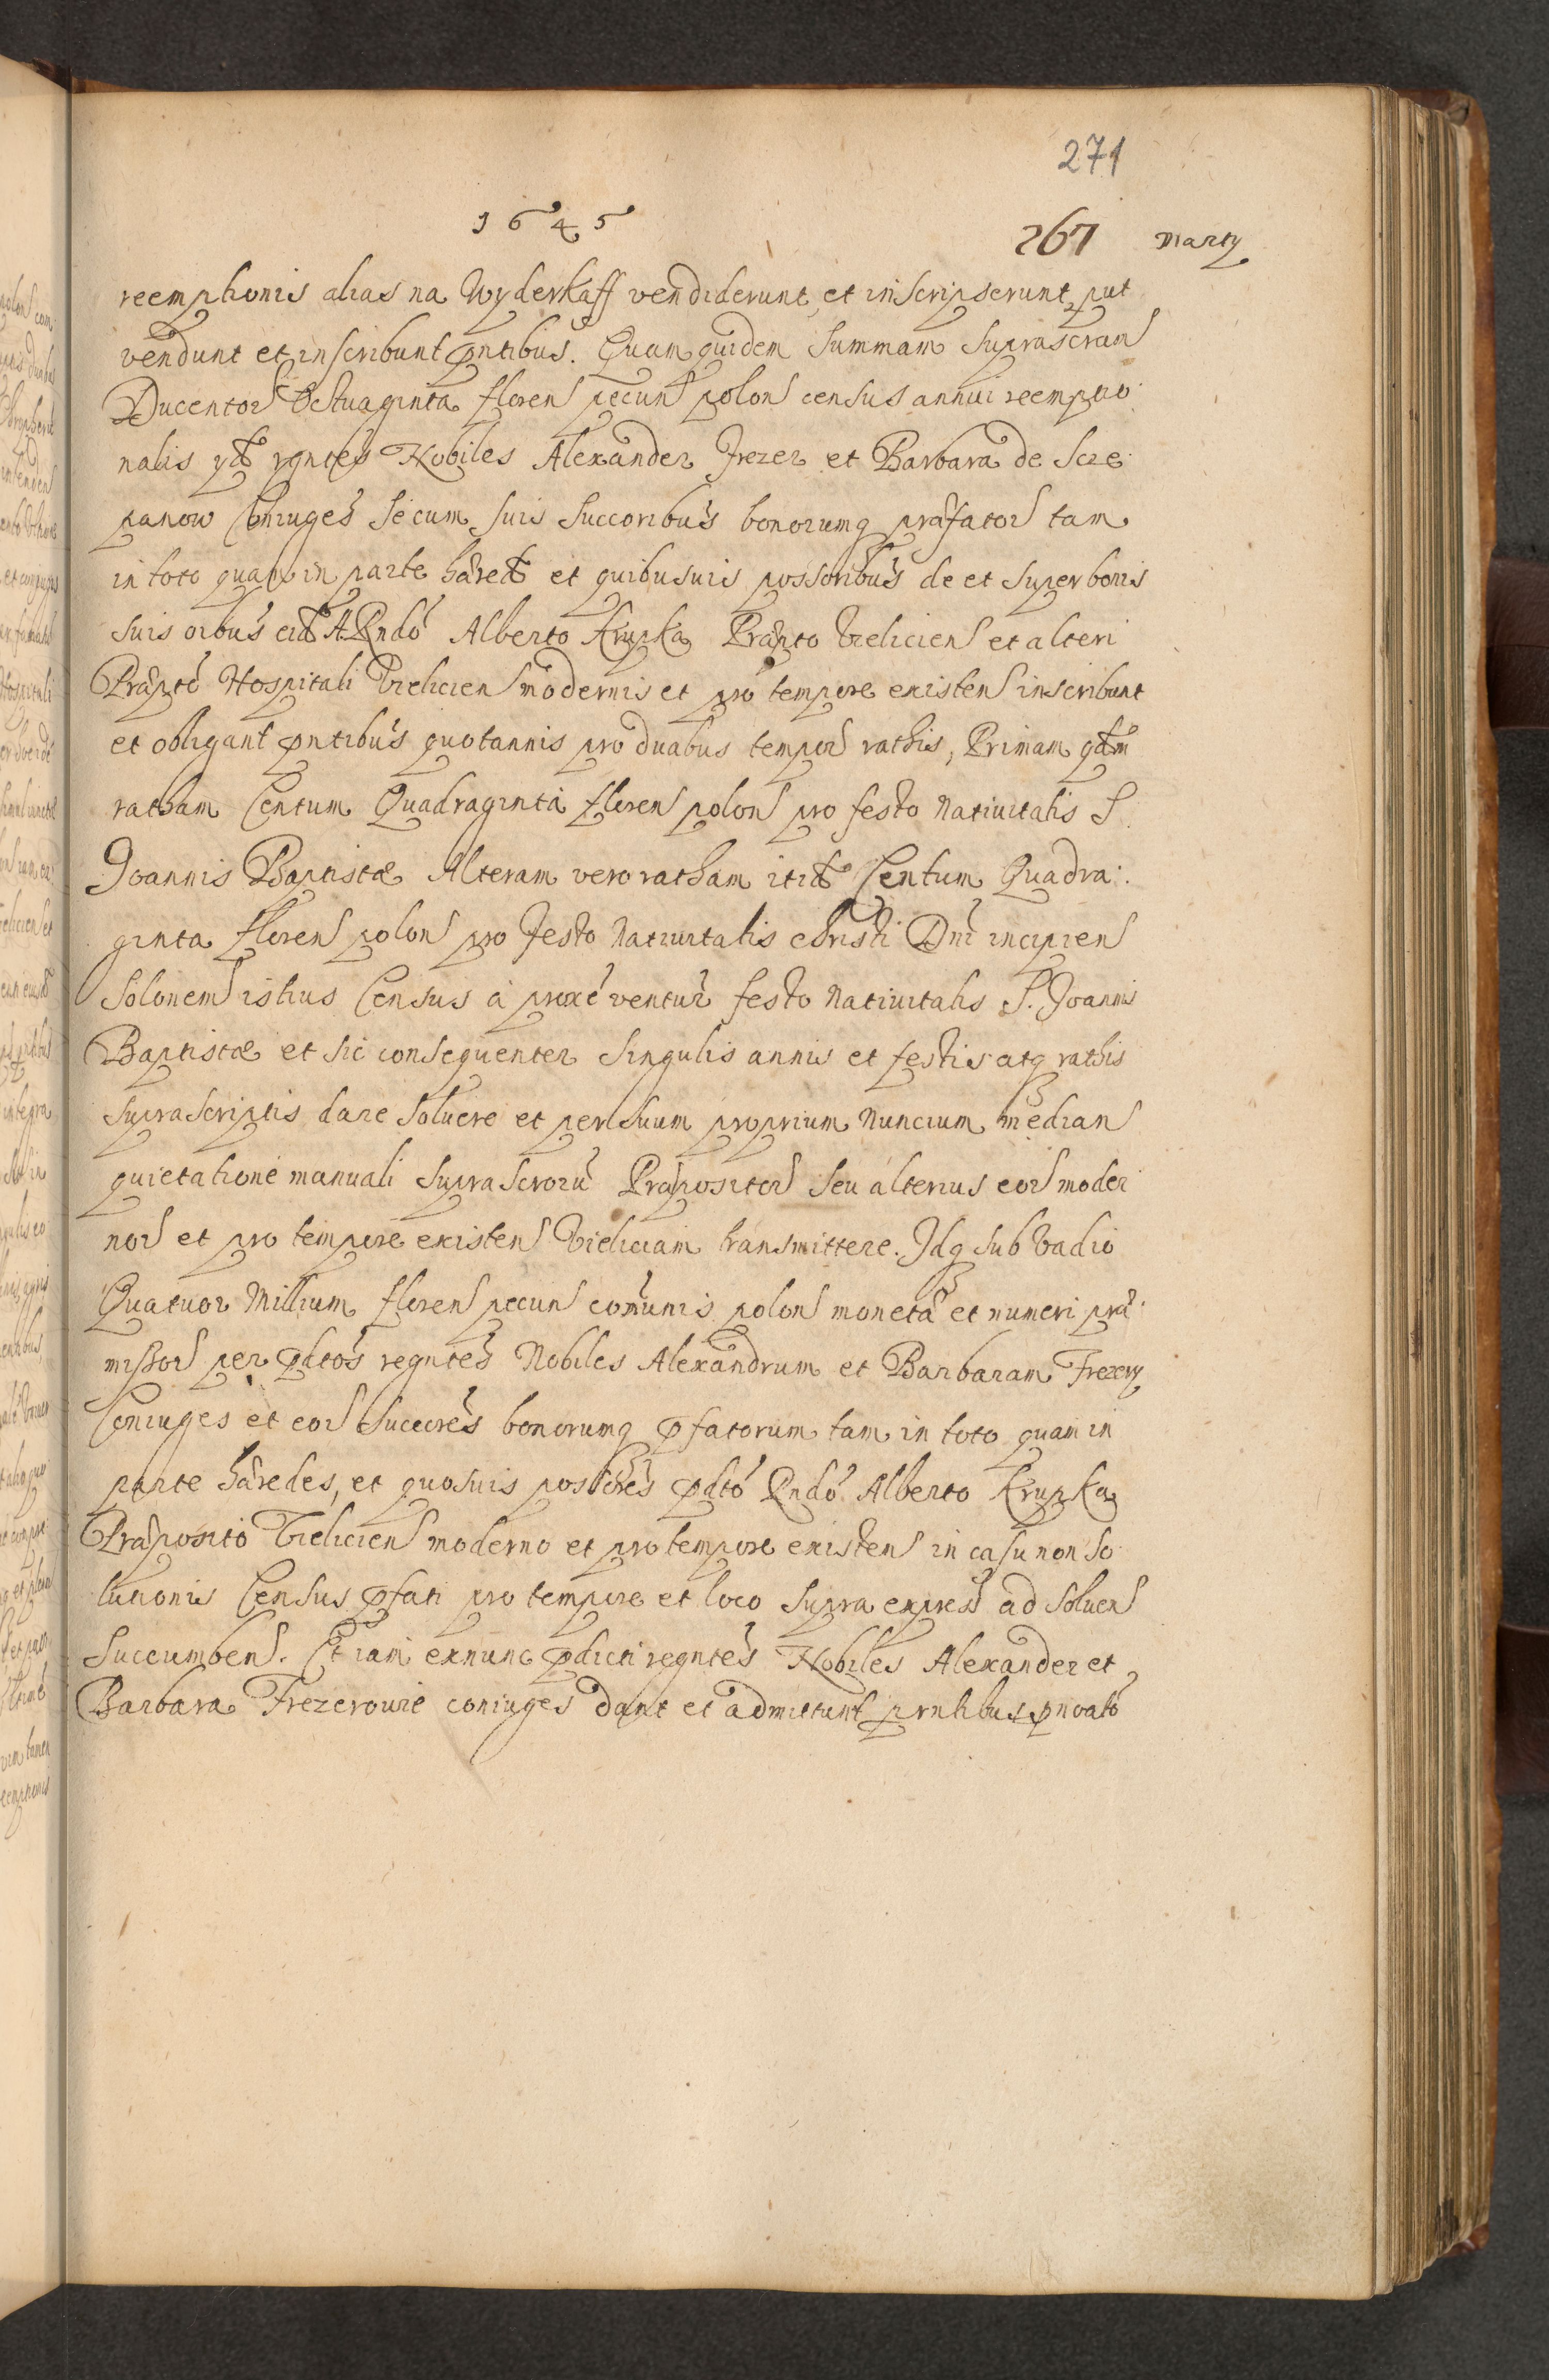 271
1645
267 Marty
reemptionis alias na Wyderkaff vendiderunt et inscripserunt, put
vendunt et inscribunt pntibus. Quam quidem Summam suprascran
Ducentor Octuaginta floren pecun polon census annui reemptio
nalis yd rgntes Nobiles Alexander Frezer et Barbara de Scze
panow Coniuges secum suis succoribus bonorumq præfator tam
in toto quam in parte hæred et quibusuis possoribus de et super bonis
suis oibus eid A Rndo Alberto Krupka Præpto Vieliciens et alteri
Præpto Hospitali Vieliciens modernis et pro tempore existens inscribunt
et obligant pntibus quotannis pro duabus tempor rathis, Primam qdm
ratham Centum Quadraginta floren polon pro festo Natiuitatis S
Joannis Baptistæ Alteram vero ratham itid Centum Quadra:
ginta floren polon pro festo Natiuitatis Christi Dni incipien
solonem istius Census a proxe ventur festo Natiuitatis S. Joannis
Baptistæ et sic consequenter singulis annis et festis atq rathis
suprascriptis dare soluere et per suum proprium Nuncium median
quietatione manuali suprascroru Præpositor seu alterius eor moder
nor et pro tempore existen Vieliciam transmittere. Idq sub vadio
Quatuor Millium floren pecun comunis polon moneta et numeri præ:
missor per pdtos regntes Nobiles Alexandrum et Barbaram Frezery
Coniuges et eor succores bonorumq pfatorum tam in toto quam in
parte hæredes, et quosuis possores pdto Rndo Alberto Krupka
Præposito Vieliciens moderno et pro tempore existen in casu non so
lutionis Census pfati pro tempore et loco supra express ad soluen
succumben. Et iam exnunc pdicti regntes Nobiles Alexander et
Barbara Frezerowie coniuges dant et admittunt prntibus pnoato